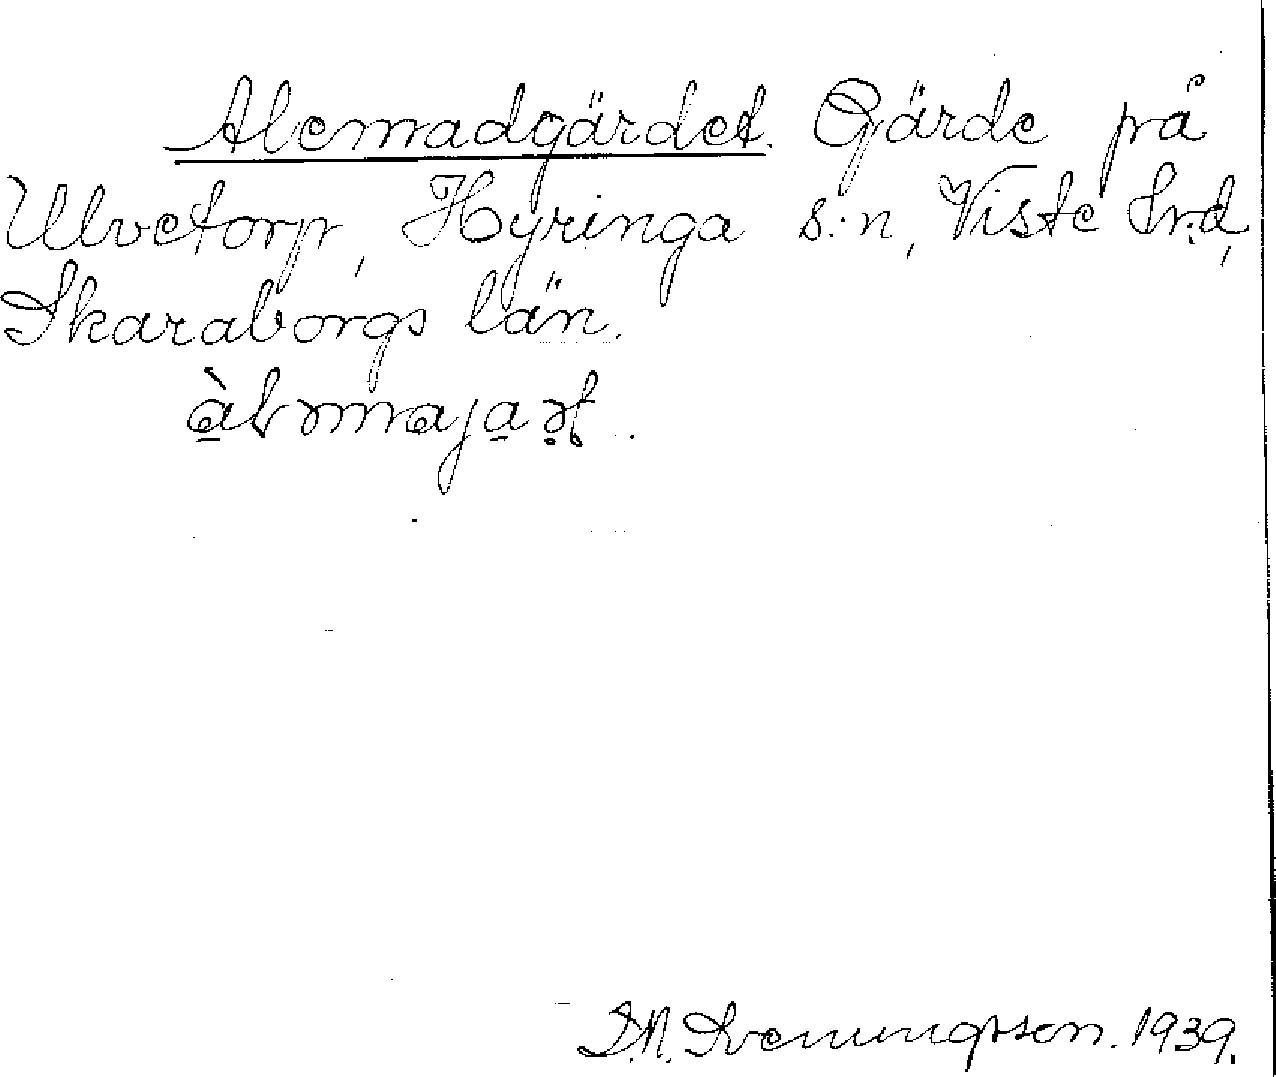 Alemadgärdet. Gärde på
Ulvetorp, Hyringa s:n, Viste hrd,
Skaraborgs län.
D.N. Svenungsson. 1939.